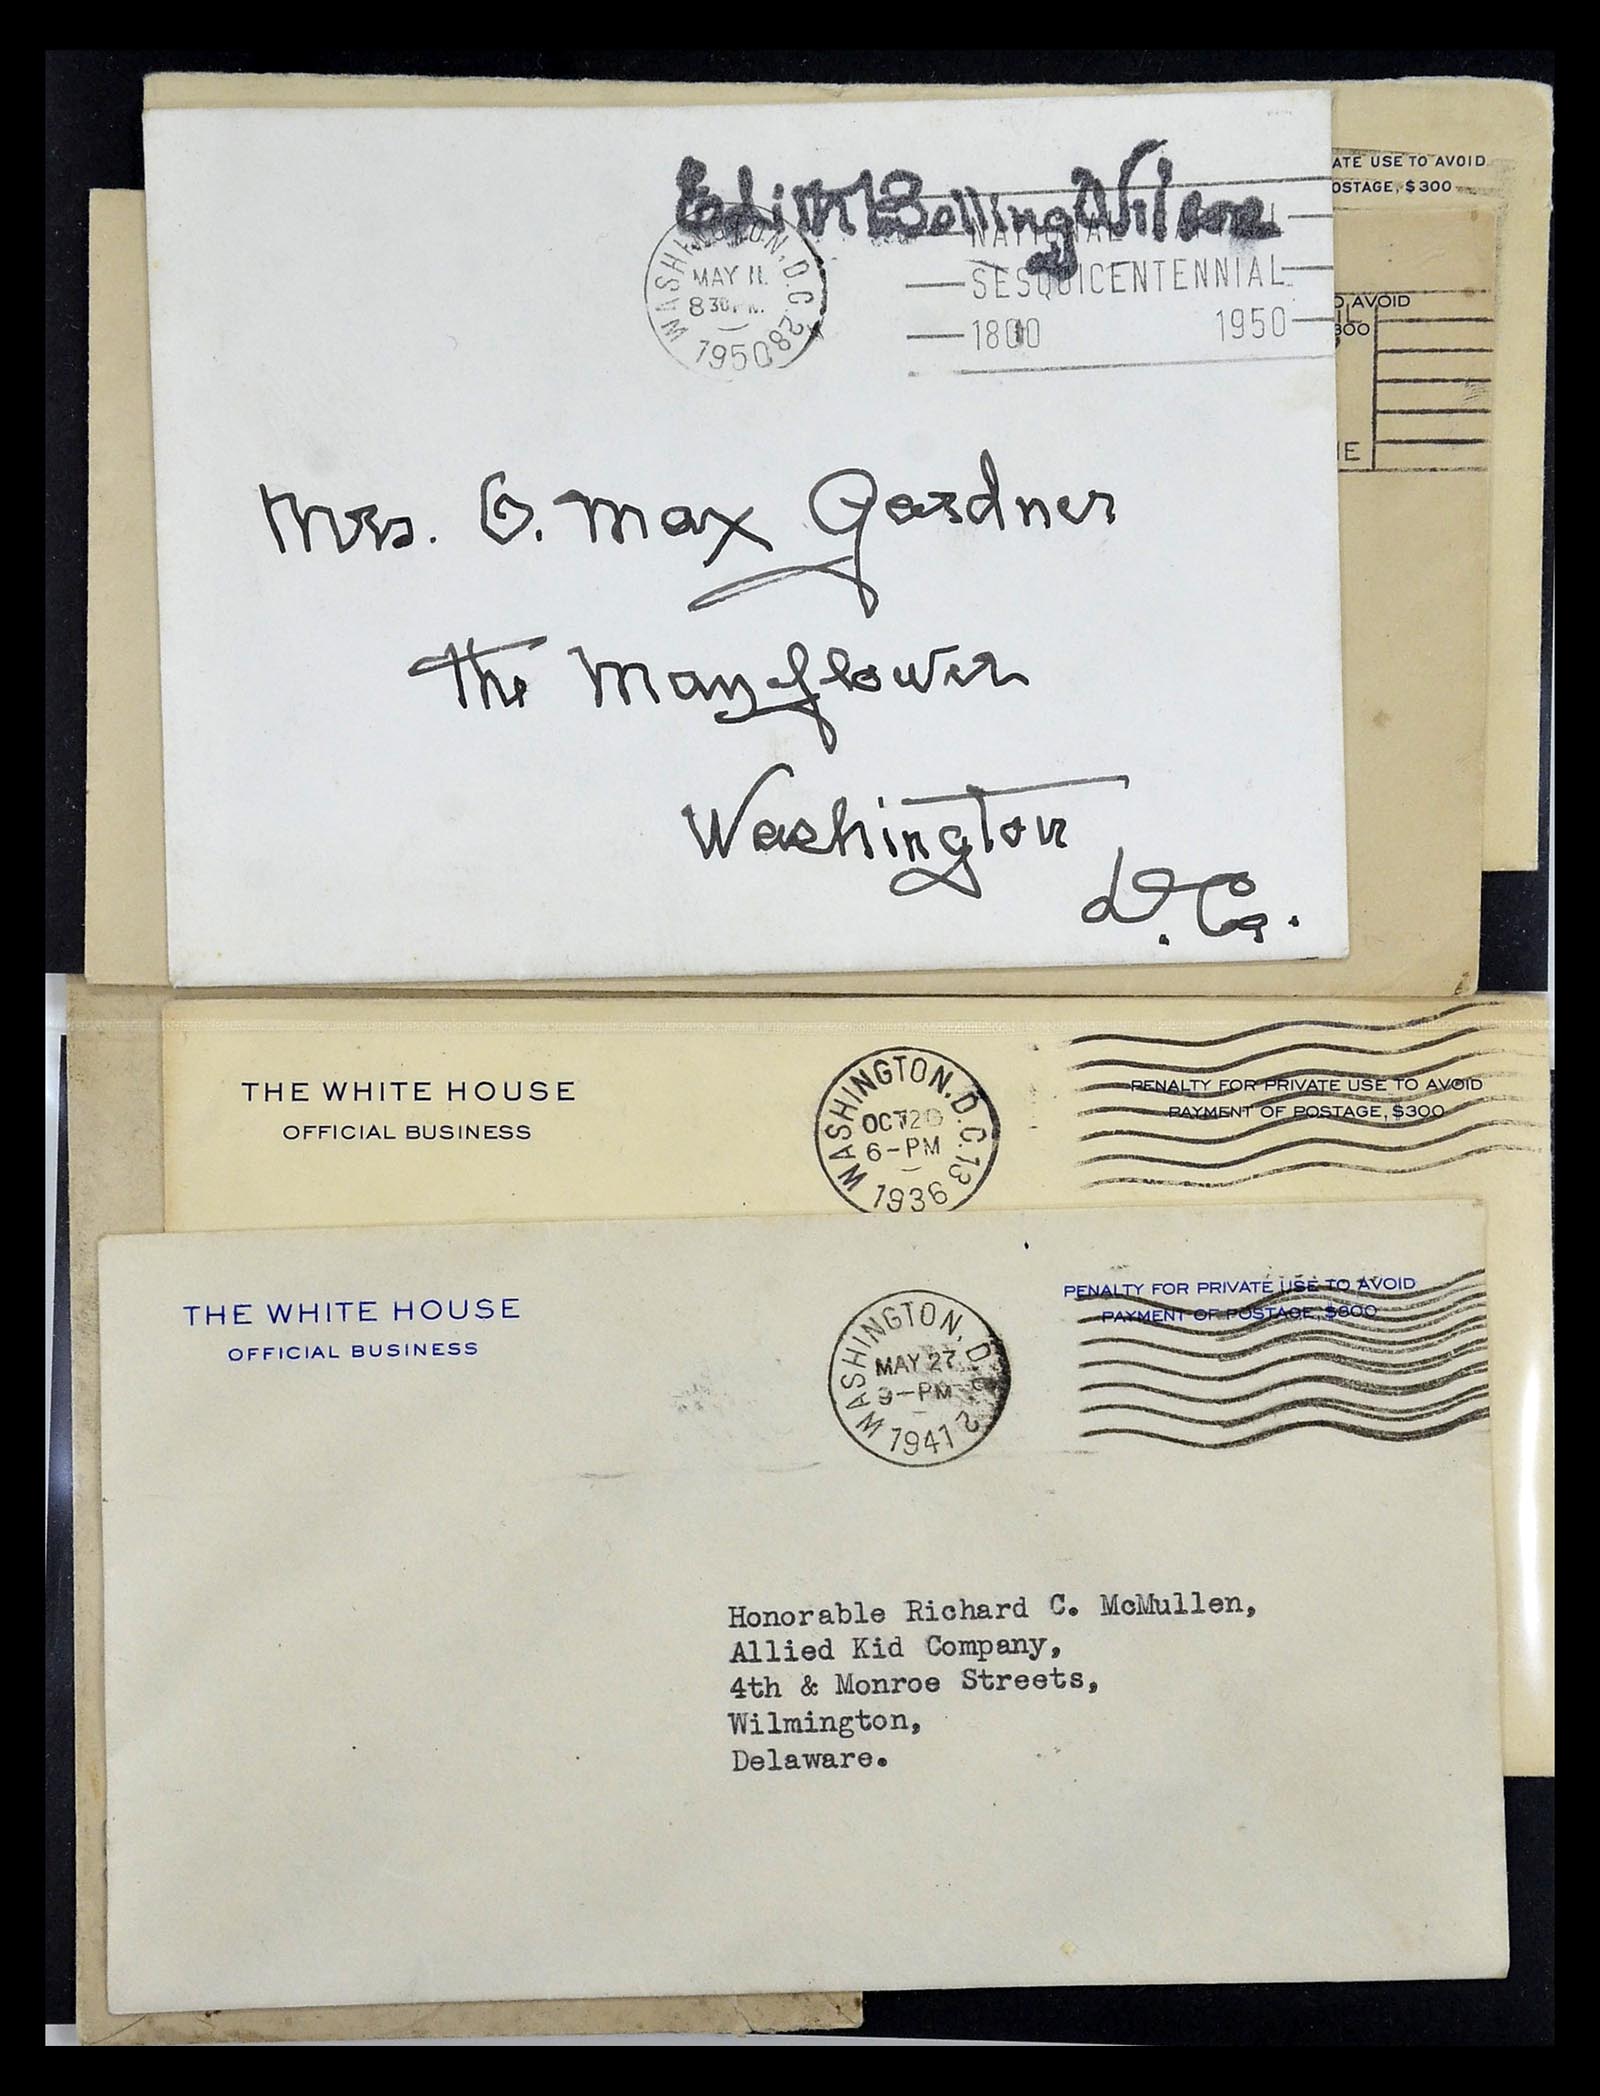 Edith Bolling Wilson
WASHINGTON, D.C. 28
MAY 11
8 30 PM
1950
NATIONAL
SESQUICENTENNIAL
1800 1950
ATE USE TO AVOID
OSTAGE, $300
AVOID
300
Mrs. O. Max Gardner
The Mayflower
Washington
D.C.
THE WHITE HOUSE
OFFICIAL BUSINESS
WASHINGTON, D.C. 13
OCT 20
6-PM
1936
PENALTY FOR PRIVATE USE TO AVOID
PAYMENT OF POSTAGE, $300
THE WHITE HOUSE
OFFICIAL BUSINESS
WASHINGTON, D.C. 2
MAY 27
9-PM
1941
PENALTY FOR PRIVATE USE TO AVOID
PAYMENT OF POSTAGE, $300
Honorable Richard C. McMullen,
Allied Kid Company,
4th & Monroe Streets,
Wilmington,
Delaware.